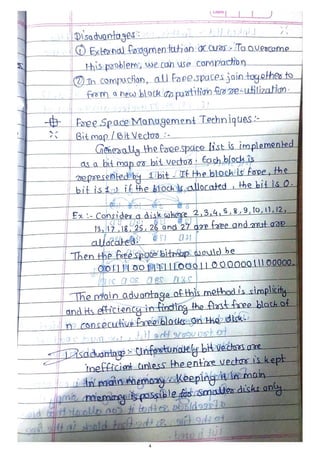 Disadvantages :-
① External fragmentation occurs :- To overcome
this problem, we can use compaction
② In compaction, all free spaces join together to
form a new block or partition for re-utilization.
Free Space Management Techniques :-
Bit map / Bit Vector :-
Generally the free space list is implemented
as a bit map or bit vector. Each block is
represented by 1 bit. If the block is free, the
bit is 1 ; if the block is allocated , the bit is 0.
Ex :- Consider a disk where 2,3,4,5,8,9,10,11,12,
13,17,18,25,26 and 27 are free and rest are
allocated.
Then the free space bitmap would be
The main advantage of this method is simplicity
and its efficiency in finding the first free block or
n consecutive free blocks on the disk.
Disadvantage :- Unfortunately bit vectors are
inefficient unless the entire vector is kept
in main memory. Keeping it in main
memory is possible for smaller disks only.
4